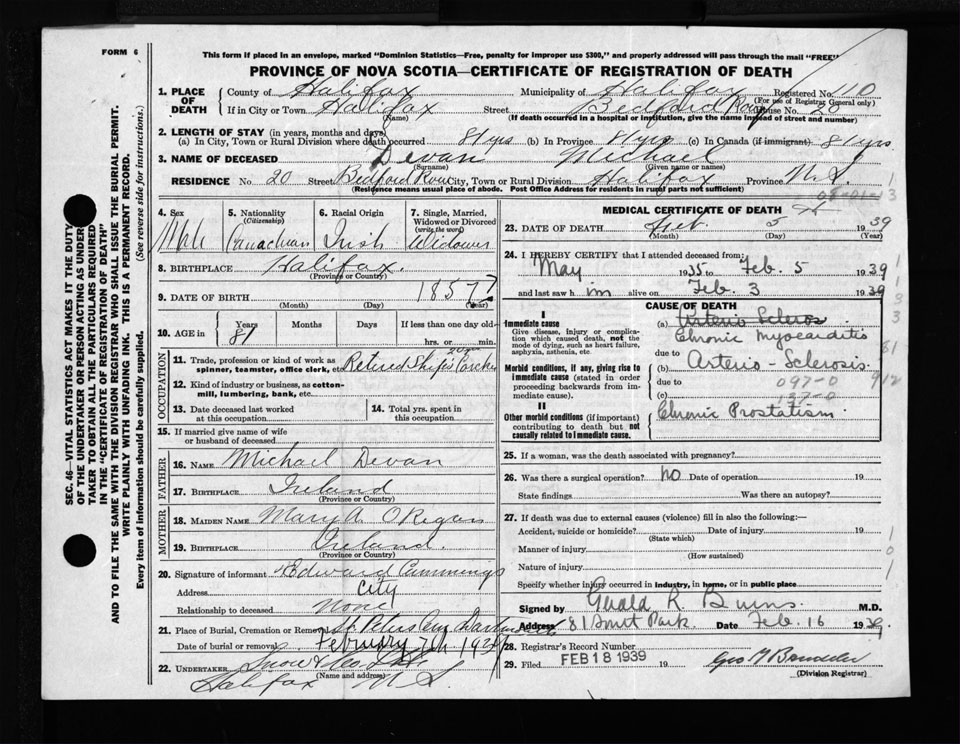 FORM 6
This form if placed in an envelope, marked "Dominion Statistics—Free, penalty for improper use $300," and properly addressed will pass through the mail "FREE"
PROVINCE OF NOVA SCOTIA—CERTIFICATE OF REGISTRATION OF DEATH
1. PLACE OF DEATH County of Halifax Municipality of Halifax Registered No. 110
(For use of Registrar General only)
If in City or Town Halifax Street Bedford Row House No. 20
(Name) (If death occurred in a hospital or institution, give the name instead of street and number)
2. LENGTH OF STAY (in years, months and days)
(a) In City, Town or Rural Division where death occurred 81 yrs (b) In Province 81 yrs (c) In Canada (if immigrant) 81 yrs
3. NAME OF DECEASED Devan Michael
(Surname) (Given name or names)
RESIDENCE No. 20 Street Bedford Row City, Town or Rural Division Halifax Province N.S.
(Residence means usual place of abode. Post Office Address for residents in rural parts not sufficient)
SEC. 46—VITAL STATISTICS ACT MAKES IT THE DUTY
OF THE UNDERTAKER OR PERSON ACTING AS UNDER
TAKER TO OBTAIN ALL THE PARTICULARS REQUIRED
IN THE "CERTIFICATE OF REGISTRATION OF DEATH"
AND TO FILE THE SAME WITH THE DIVISION REGISTRAR WHO SHALL ISSUE THE BURIAL PERMIT.
WRITE PLAINLY WITH UNFADING INK. THIS IS A PERMANENT RECORD.
Every item of information should be carefully supplied. (See reverse side for instructions.)
4. Sex Male
5. Nationality (Citizenship) Canadian
6. Racial Origin Irish
7. Single, Married, Widowed or Divorced (write the word) Widower
8. BIRTHPLACE Halifax.
(Province or Country)
9. DATE OF BIRTH 1857?
(Month) (Day) (Year)
10. AGE in Years Months Days If less than one day old
81 hrs. or min.
OCCUPATION
11. Trade, profession or kind of work as spinner, teamster, office clerk, etc. Retired Ship's
12. Kind of industry or business, as cotton-mill, lumbering, bank, etc.
13. Date deceased last worked at this occupation
14. Total yrs. spent in this occupation
15. If married give name of wife or husband of deceased
FATHER
16. NAME Michael Devan
17. BIRTHPLACE Ireland
(Province or Country)
MOTHER
18. MAIDEN NAME Mary A. O'Regan
19. BIRTHPLACE Ireland.
(Province or Country)
20. Signature of informant Edward Cummings
Address City
Relationship to deceased None
21. Place of Burial, Cremation or Removal St Peters Cem Dartmouth
Date of burial or removal February
22. UNDERTAKER Snow & Co. Ltd
(Name and address)
Halifax N.S.
MEDICAL CERTIFICATE OF DEATH
23. DATE OF DEATH Feb. 5 1939
(Month) (Day) (Year)
24. I HEREBY CERTIFY that I attended deceased from:
May 1935 to Feb. 5 1939
and last saw h im alive on Feb. 3 1939
CAUSE OF DEATH
I
Immediate cause
Give disease, injury or complication which caused death, not the mode of dying, such as heart failure, asphyxia, asthenia, etc.
(a) Arterio Scleros
Chronic Myocarditis
due to
Morbid conditions, if any, giving rise to immediate cause (stated in order proceeding backwards from immediate cause).
(b) Arterio-Sclerosis.
due to 097-0
(c) 137-0
II
Other morbid conditions (if important) contributing to death but not causally related to immediate cause.
Chronic Prostatism.
25. If a woman, was the death associated with pregnancy?
26. Was there a surgical operation? NO Date of operation 19
State findings Was there an autopsy?
27. If death was due to external causes (violence) fill in also the following:—
Accident, suicide or homicide? Date of injury 19
(State which)
Manner of injury
(How sustained)
Nature of injury
Specify whether injury occurred in industry, in home, or in public place
Signed by Gerald R. Burns. M.D.
Address 81 Park Date Feb. 16 1939
28. Registrar's Record Number
29. Filed FEB 18 1939
(Division Registrar)